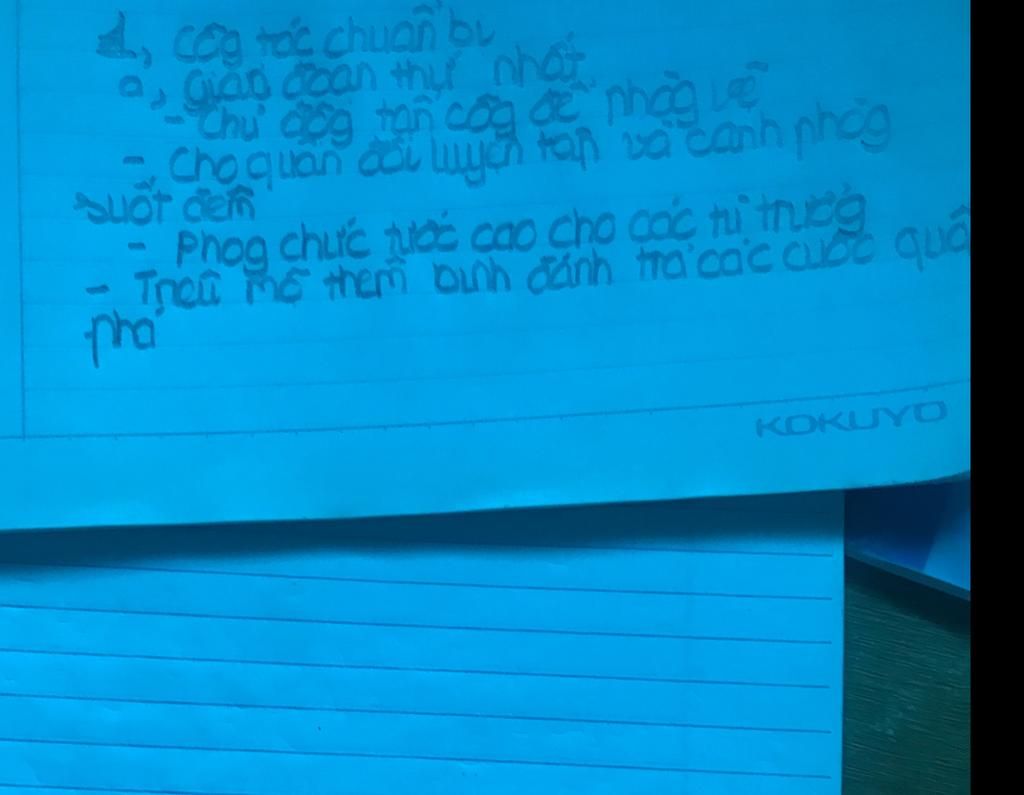 1, Côg tác chuẩn bị
a, Giao đoan thứ nhất
- Chủ độg tấn côg để phòg vệ
- Cho quân đội luyện tập và canh phòg
suốt đêm
- Phog chức tước cao cho các tù trưởg
- Mộ thêm binh đánh trả các cuộc quấ
phá
KOKUYO